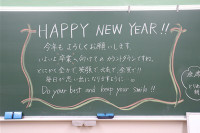 HAPPY NEW YEAR!!
今年もよろしくお願いします。
いよいよ卒業へ向けてのカウントダウンですね。
毎日が思い出になりますように。
Do your best and keep your smile!!